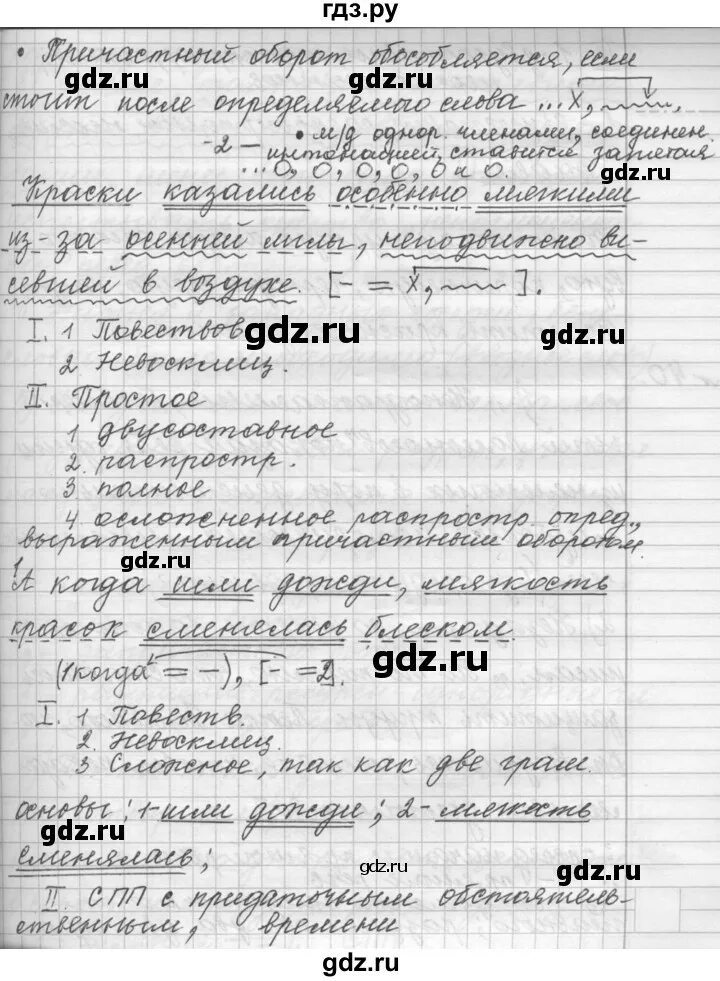 гдз.ру
• Причастный оборот обособляется, если
gdz.ru gdz.ru
стоит после определяемого слова ...X, ﹏﹏,
-2- • м/д однор. членами, соединен.
интонацией, ставится запятая
...О, О, О, О, О и О.
Краски казались особенно мягкими
из-за осенней мглы, неподвижно ви-
gdz.ru gdz.ru
севшей в воздухе. [- = X, ﹏﹏ ].
I. 1 Повествов
gdz.ru
2 Невосклиц.
II. Простое
1 двусоставное
2. распростр.
gdz.ru
3 полное
4. осложненное распростр. опред.,
выраженным причастным оборотом.
gdz.ru
1
А когда шли дожди, мягкость
красок сменялась блеском.
gdz.ru
(1когда = -), [- =2].
I. 1 Повеств.
2. Невосклиц.
gdz.ru
3 Сложное, так как две грам.
основы: 1-шли дожди; 2-мяжость
gdz.ru
сменялась;
gdz.ru gdz.ru
II. СПП с придаточным обстоятель-
ственным, времени
gdz.ru